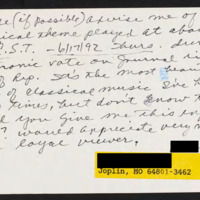 (if possible) advise me of
ical theme played at abou
S.T. - 6/17/92 Thurs. dur
ronic vote on Journal
Rep. It's the most beau
of classical music I've
times, but don't know t
d you give me this
? would appreciate very
loyal viewer,
Joplin, MO 64801-3462